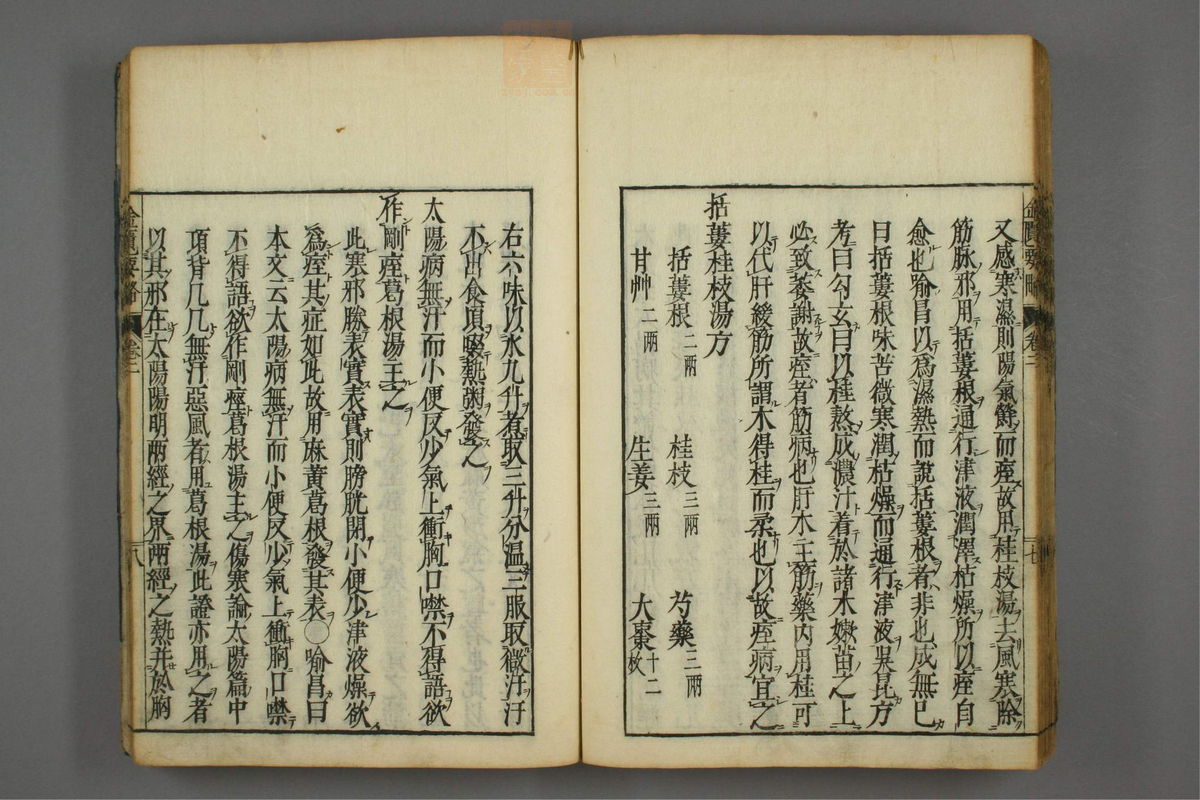 又感寒濕則陽氣欝而痙故用桂枝湯去風寒除
筋脉邪用括蔞根通行津液潤澤枯燥所以痙自
愈也喻昌以爲濕熱而說括蔞根者非也成無已
曰括蔞根味苦微寒潤枯燥而通行津液吳昆方
考曰今玄曰以桂熬成濃汁着於諸木嫩苗之上
必致萎謝故痙者筋病也肝木主筋藥内用桂可
以代肝緩筋所謂木得桂而柔也以故痙病宜之
括蔞桂枝湯方
括蔞根二兩 桂枝三兩 芍藥三兩
甘艸二兩 生姜三兩 大棗十二枚
金匱要略 卷二 七
右六味以水九升煮取三升分温三服取微汗汗
不出食頃啜熱粥發之
太陽病無汗而小便反少氣上衝胸口噤不得語欲
作剛痙葛根湯主之
此寒邪勝表實表實則膀胱閉小便少津液燥欲
爲痙其症如此故用麻黄葛根發其表○喻昌曰
本文云太陽病無汗而小便反少氣上衝胸口噤
不得語欲作剛痙葛根湯主之傷寒論太陽篇中
項背几几無汗惡風者用葛根湯此證亦用之者
以其邪在太陽陽明兩經之界兩經之熱并於胸
金匱要略 卷二 八